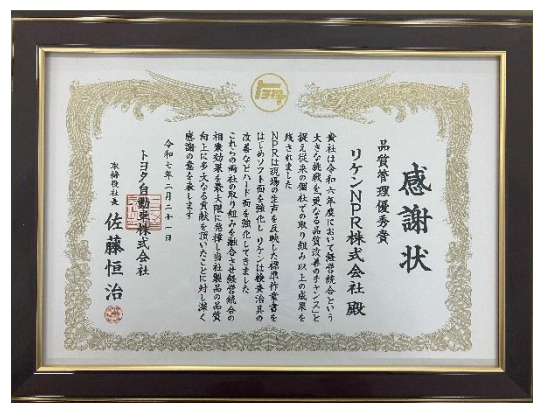 トヨタ
感謝状
品質管理優秀賞
リケンNPR株式会社 殿
貴社は令和六年度において経営統合という
大きな挑戦を「更なる品質改善のチャンス」と
捉え従来の個社での取り組み以上の成果を
残されました
NPRは現場の生声を反映した標準作業書を
はじめソフト面を強化し リケンは検査治具の
改善などハード面を強化してきました
これらの両社の取り組みを融合させ経営統合の
相乗効果を最大限に発揮し当社製品の品質
向上に多大なる貢献を頂いたことに対し深く
感謝の意を表します
令和七年二月二十一日
トヨタ自動車株式会社
取締役社長 佐藤恒治